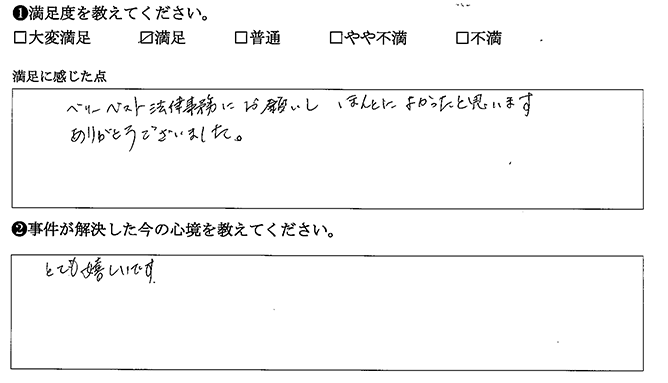 ❶満足度を教えてください。
□大変満足 ☑満足 □普通 □やや不満 □不満
満足に感じた点
ベリーベスト法律事務にお願いし ほんとによかったと思います
ありがとうございました。
❷事件が解決した今の心境を教えてください。
とても嬉しいです